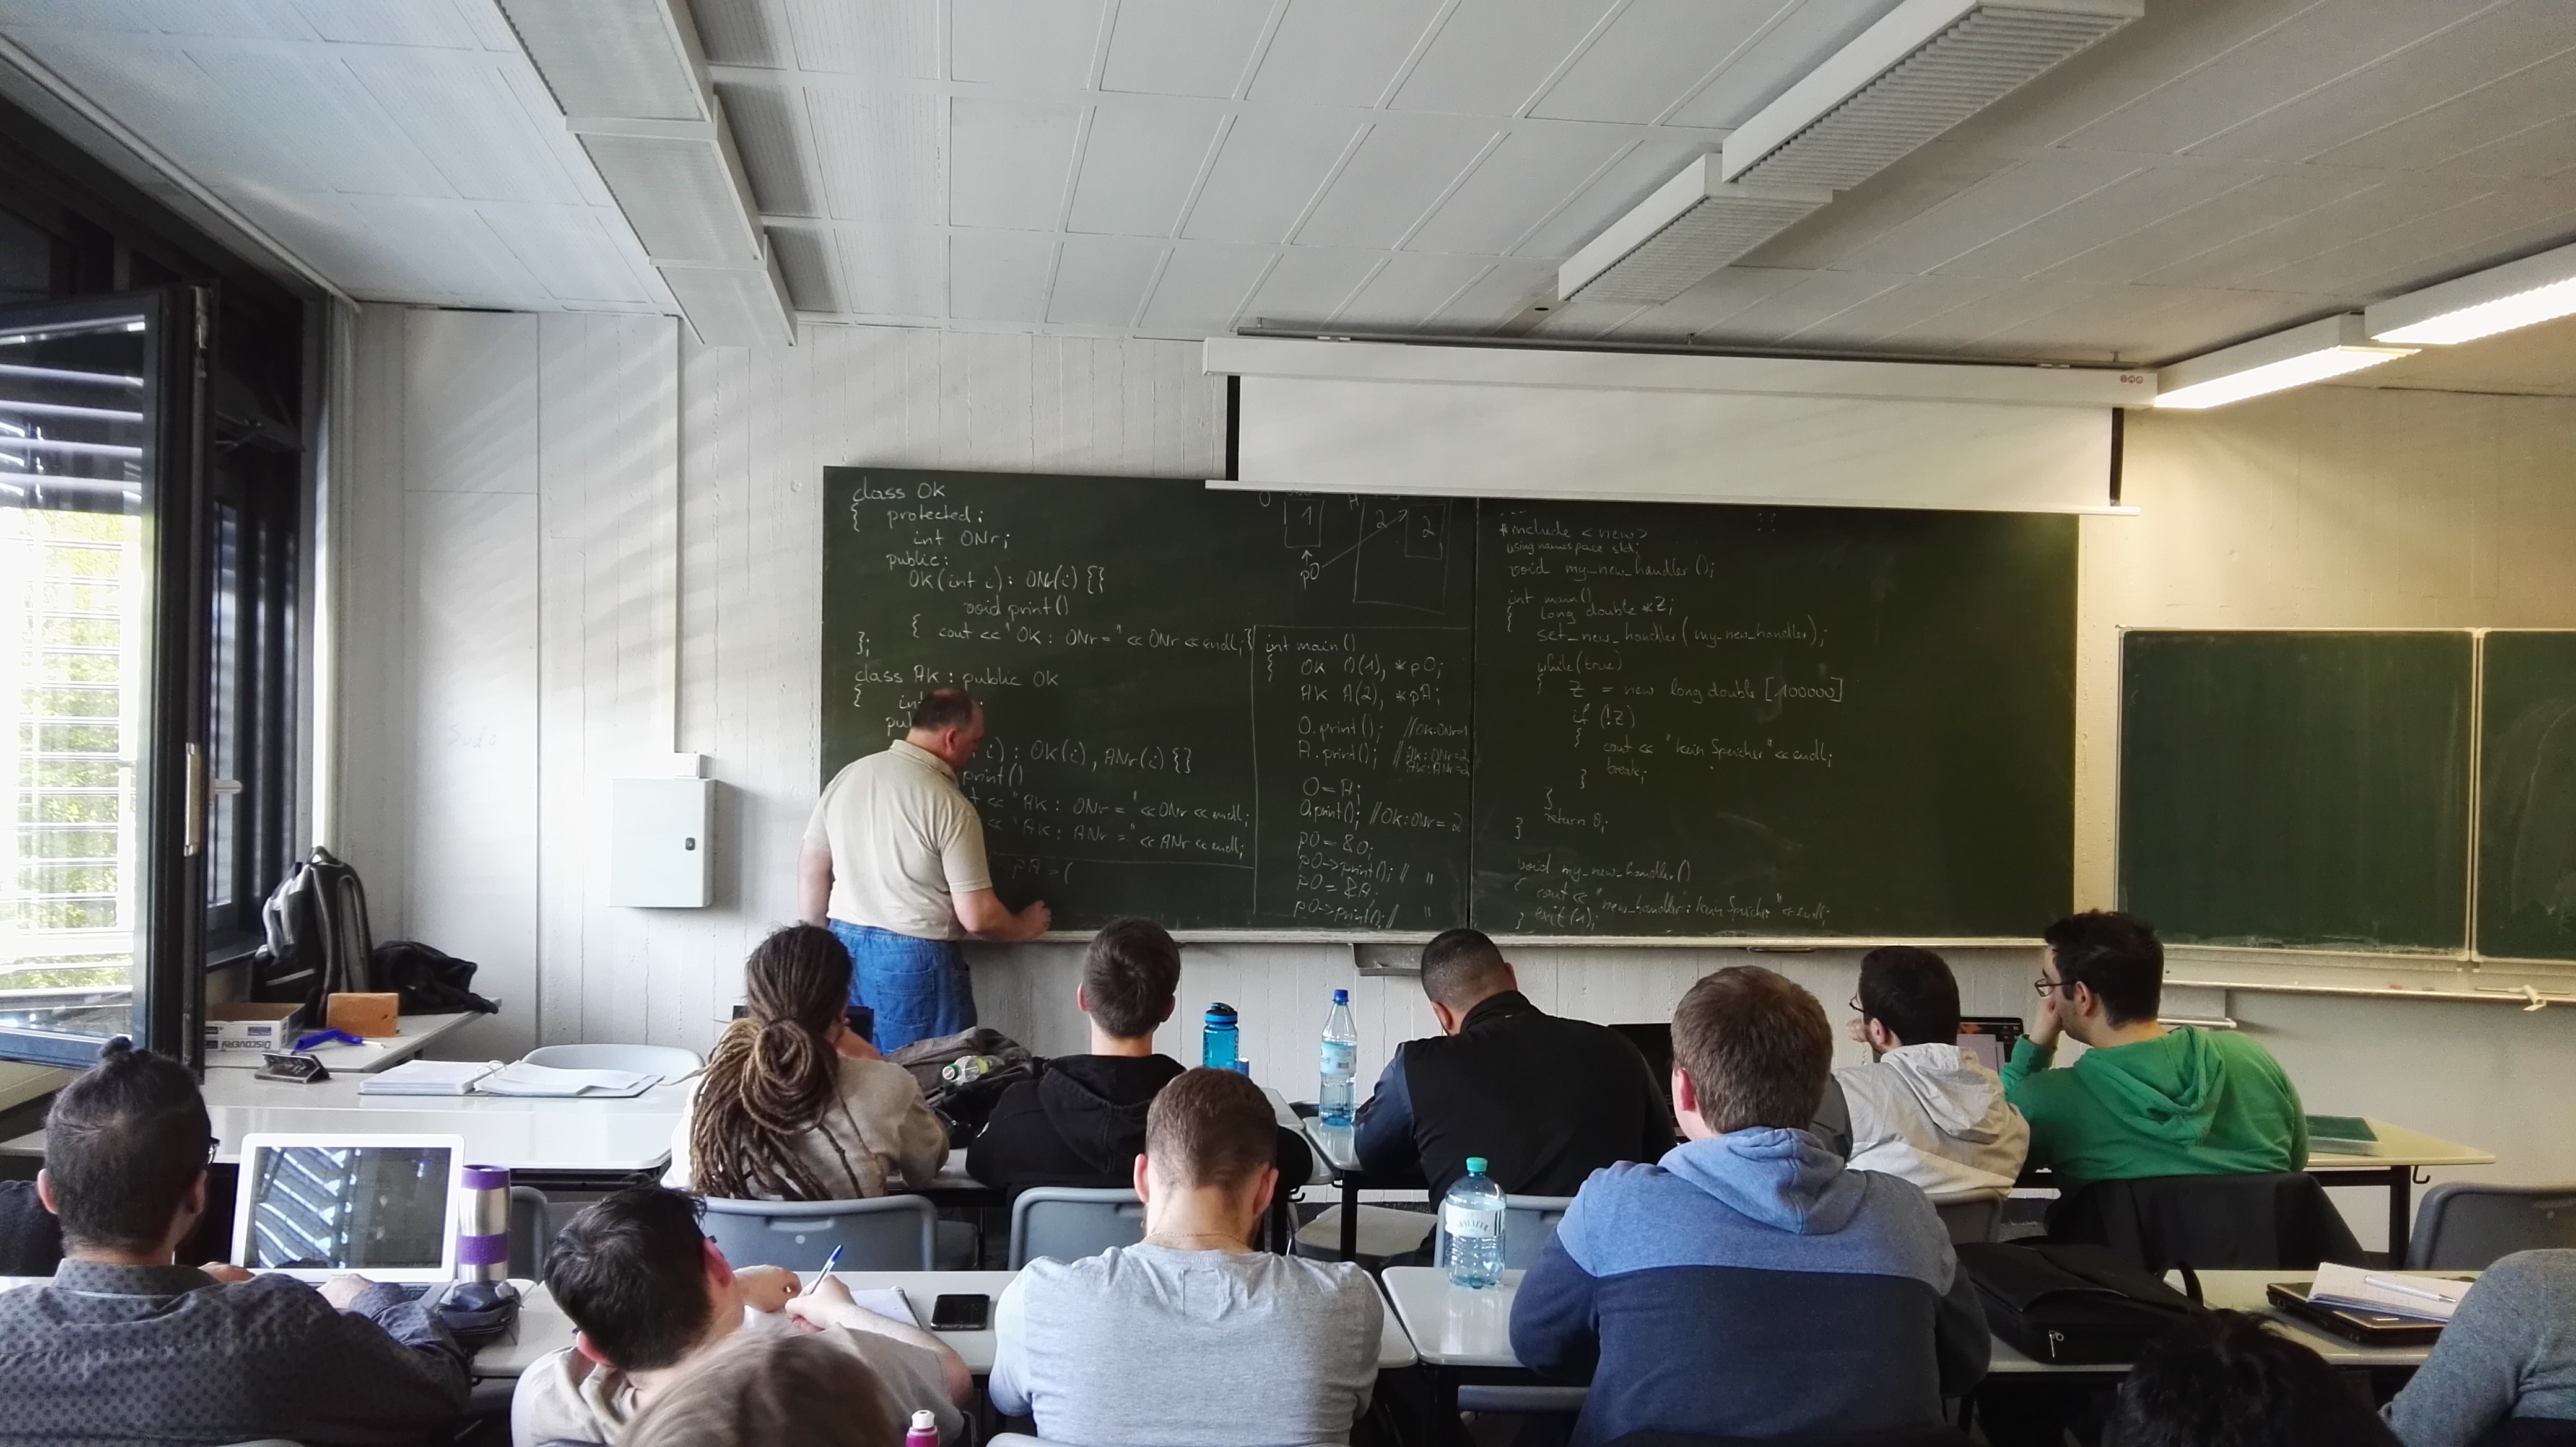 class Ok
{ protected:
int ONr;
public:
Ok(int i): ONr(i) {}
void print()
{ cout << "Ok: ONr=" << ONr << endl;}
};
class Ak: public Ok
{ int
pu
i): Ok(i), ANr(i) {}
print()
<< "Ak: ONr=" << ONr << endl;
<< "Ak: ANr=" << ANr << endl;
pA=(
1
2
2
pO
int main()
{ Ok O(1), *pO;
Ak A(2), *pA;
O.print(); //Ok:ONr=1
A.print(); //Ak:ONr=2
Ak:ANr=2
O=A;
O.print(); //Ok:ONr=2
pO=&O;
pO->print(); // "
pO=&A;
pO->print(); // "
#include <new>
using namespace std;
void my_new_handler();
int main()
{ long double *z;
set_new_handler(my_new_handler);
while(true)
{ z = new long double [100000]
if (!z)
{ cout << "kein Speicher" << endl;
break;
}
}
return 0;
}
void my_new_handler()
{ cout << "new_handler: kein Speicher" << endl;
} exit(1);
Sudo
DISCOVERY